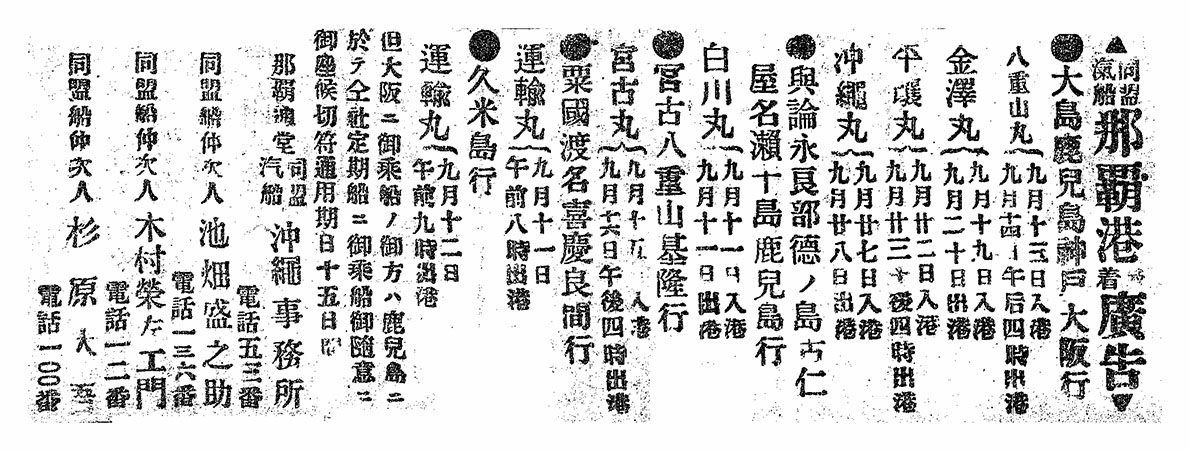 ▲同盟汽船那覇港発着廣告▼
●大島鹿兒島神戸大阪行
八重山丸 九月十三日入港
九月十四日午后四時出港
金澤丸 九月十九日入港
九月二十日出港
平壌丸 九月廿二日入港
九月廿三日午後四時出港
沖繩丸 九月廿七日入港
九月廿八日出港
●與論永良部德ノ島古仁
屋名瀬十島鹿兒島行
白川丸 九月十一日入港
九月十一日出港
●宮古八重山基隆行
宮古丸 九月十五日入港
九月十六日午後四時出港
●粟國渡名喜慶良間行
運輸丸 九月十一日
午前八時出港
●久米島行
運輸丸 九月十二日
午前九時出港
但大阪ニ御乘船ノ御方ハ鹿兒島ニ
於テ仝社定期船ニ御乘船御隨意ニ
御座候切符通用期日十五日間
那覇漁堂
同盟汽船 沖繩事務所
電話五三番
同盟船仲次人 池畑盛之助
電話一三六番
同盟船仲次人 木村榮左エ門
電話一二番
同盟船仲次人 杉原大吾
電話一〇〇番